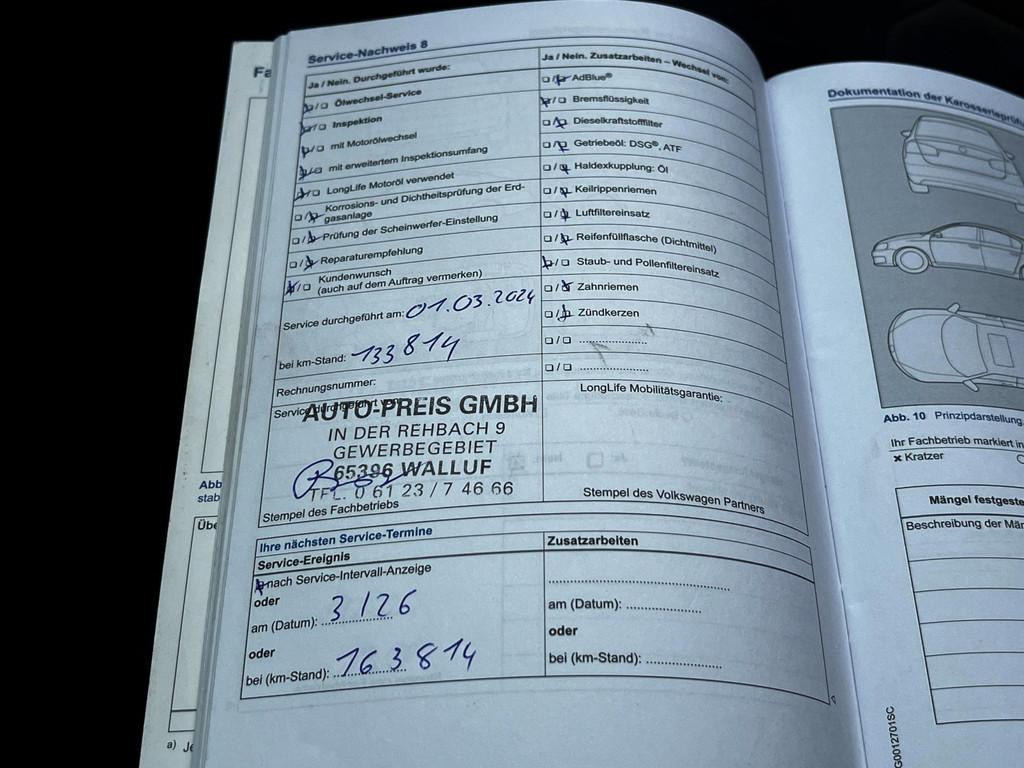 Fa
Service-Nachweis 8
Ja / Nein. Durchgeführt wurde:
/ Ölwechsel-Service
/ Inspektion
/ mit Motorölwechsel
/ mit erweitertem Inspektionsumfang
/ LongLife Motoröl verwendet
/ Korrosions- und Dichtheitsprüfung der Erd-
gasanlage
/ Prüfung der Scheinwerfer-Einstellung
/ Reparaturempfehlung
/ Kundenwunsch
(auch auf dem Auftrag vermerken)
Service durchgeführt am: 01.03.2024
bei km-Stand: 133 814
Rechnungsnummer:
Service durchgeführt von:
AUTO-PREIS GMBH
IN DER REHBACH 9
GEWERBEGEBIET
65396 WALLUF
TEL. 0 61 23 / 7 46 66
Stempel des Fachbetriebs
Ja / Nein. Zusatzarbeiten – Wechsel von:
/ AdBlue®
/ Bremsflüssigkeit
/ Dieselkraftstofffilter
/ Getriebeöl: DSG®, ATF
/ Haldexkupplung: Öl
/ Keilrippenriemen
/ Luftfiltereinsatz
/ Reifenfüllflasche (Dichtmittel)
/ Staub- und Pollenfiltereinsatz
/ Zahnriemen
/ Zündkerzen
/ ....................
/ ....................
LongLife Mobilitätsgarantie:
Stempel des Volkswagen Partners
Ihre nächsten Service-Termine
Service-Ereignis
nach Service-Intervall-Anzeige
oder
am (Datum): 3 126
oder
bei (km-Stand): 163 814
Zusatzarbeiten
..................................................
am (Datum): ....................
oder
bei (km-Stand): ....................
Abb
stab
Übe
a) Je
Dokumentation der Karosserieprüfu
Abb. 10 Prinzipdarstellung.
Ihr Fachbetrieb markiert in
× Kratzer
Mängel festgeste
Beschreibung der Män
G0012701SC